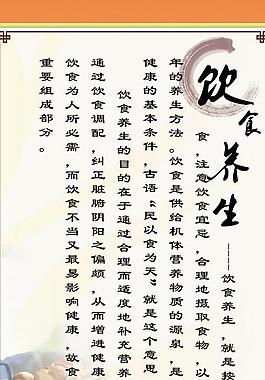 饮食养生
------饮食养生，就是按
食，注意饮食宜忌，合理地摄取食物，以
年的养生方法。饮食是供给机体营养物质的源泉，是
健康的基本条件，古语“民以食为天”就是这个意思
饮食养生的目的在于通过合理而适度地补充营养
通过饮食调配，纠正脏腑阴阳之偏颇，从而增进健康
饮食为人所必需，而饮食不当又最易影响健康，故食
重要组成部分。